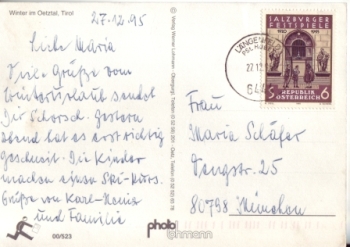 Winter im Oetztal, Tirol
27.12.95
Liebe Maria
Viele Grüße vom
Winterurlaub sendet
Dir Schorsch. Gestern
abend hat es erst richtig
geschneit. Die Kinder
machen einen Ski-Kurs.
Grüße von Karl-Heinz
und Familie
00/523
photo
SALZBURGER
FESTSPIELE
REPUBLIK
S ÖSTERREICH 6
LÄNGENFELD
27.12
Frau
Maria Schäfer
80798 München